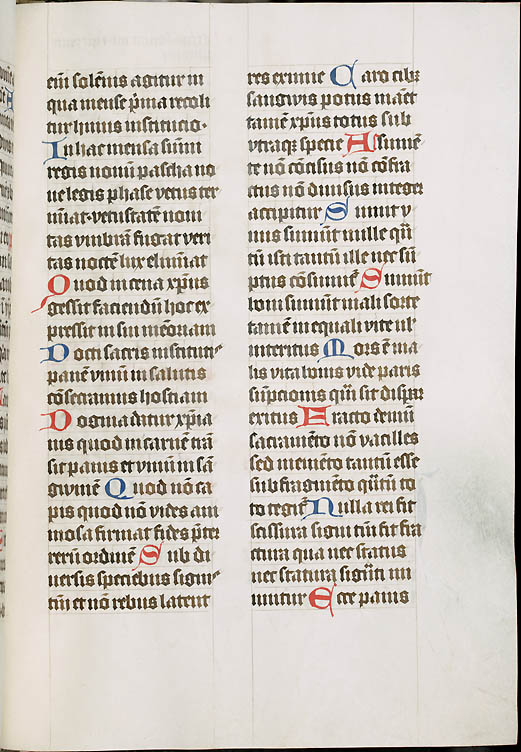 em̄ solēnis agitur in
qua mense p̄ma recoli
tur huius institucio·
In hac mensa sum̄i
regis nouū pascha no
ue legis phase vetus ter
mīat·vetustatē noui
tas vmbrā fugat veri
tas noctē lux elimīat
Quod in cena xp̄us
gessit faciendū hoc ex
pressit in sui mēoriam
Docti sacris institutis
panē vinū in salutis
cōsecramus hostiam
Dogma datur xp̄ia
nis quod in carnē trā
sit panis et vinū in sā
gwinē Quod nō ca
pis quod nō vides ani
mosa firmat fides p̄ter
rerū ordinē Sub di
uersis speciebus signis
tm̄ et nō rebus latent
res eximie Caro cibꝫ
sangwis potus manēt
tamē xp̄us totus sub
vtraqꝫ specie A sumēn
te nō cōcisus nō cōfra
ctus nō diuisus integer
accipitur Sumit v
nus sumūt mille qm̄
tū isti tantū ille nec sū
ptus cōsumitē Sumūt
boni sumūt mali sorte
tamē inequali vite ul'
interitus Mors ē ma
lis vita bonis vide paris
sūpcionis qm̄ sit dispar
exitus Fracto demū
sacramēto nō vacilles
sed memēto tantū esse
sub fragmēto qm̄tū to
to tegit̄ Nulla rei fit
scissura signi tm̄ fit fra
ctura qua nec status
nec statura signāti mi
nuitur Ecce panis